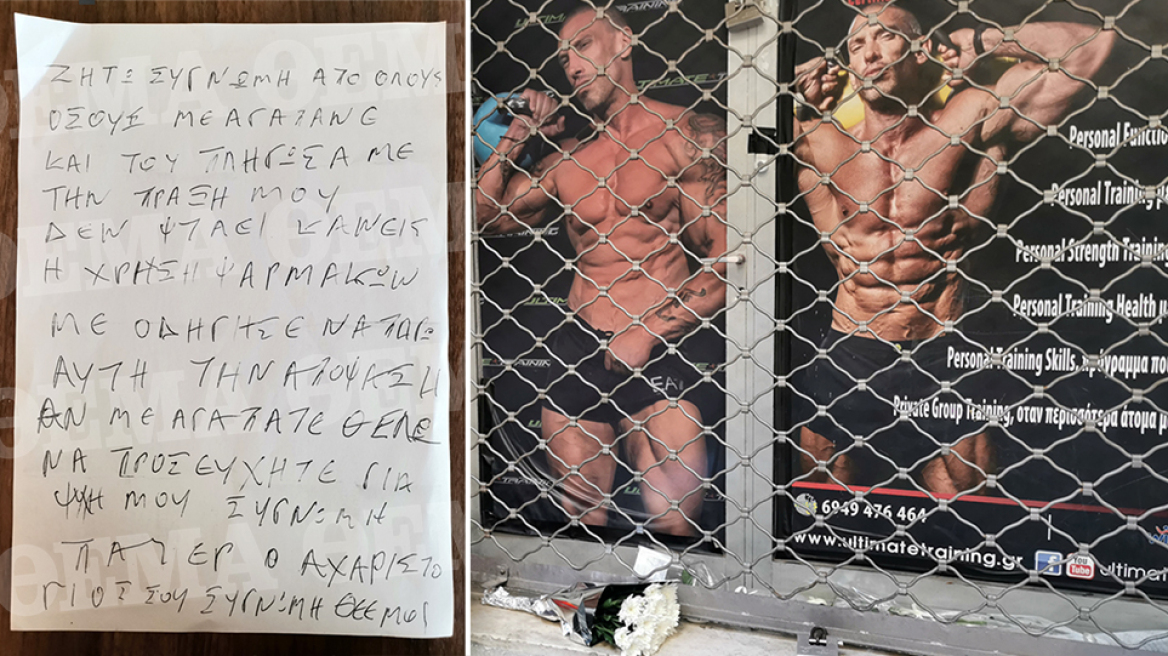 ΖΗΤΩ ΣΥΓΝΩΜΗ ΑΠΟ ΟΛΟΥΣ
ΟΣΟΥΣ ΜΕ ΑΓΑΠΑΝΕ
ΚΑΙ ΤΟΥ ΠΛΗΓΩΣΑ ΜΕ
ΤΗΝ ΠΡΑΞΗ ΜΟΥ
ΔΕΝ ΦΤΑΕΙ ΚΑΝΕΙΣ
Η ΧΡΗΣΗ ΦΑΡΜΑΚΩΝ
ΜΕ ΟΔΗΓΗΣΕ ΝΑ ΠΑΡΩ
ΑΥΤΗ ΤΗΝ ΑΠΟΦΑΣΗ
ΑΝ ΜΕ ΑΓΑΠΑΤΕ ΘΕΛΩ
ΝΑ ΠΡΟΣΕΥΧΗΤΕ ΓΙΑ
ΜΟΥ ΣΥΓΝΩΜΗ
ΠΑΤΕΡ Ο ΑΧΑΡΙΣΤΟ
ΓΙΟΣ ΣΟΥ ΣΥΓΝΩΜΗ
ΘΕΜΑ
Personal Functio
Personal Training
Personal Strength Training
Personal Training Health μ
Personal Training Skills, πρόγραμμα που
Private Group Training, όταν περισσότερα άτομα μ
6949 476 464
www.ultimatetraining.gr
f
You Tube
ultimat